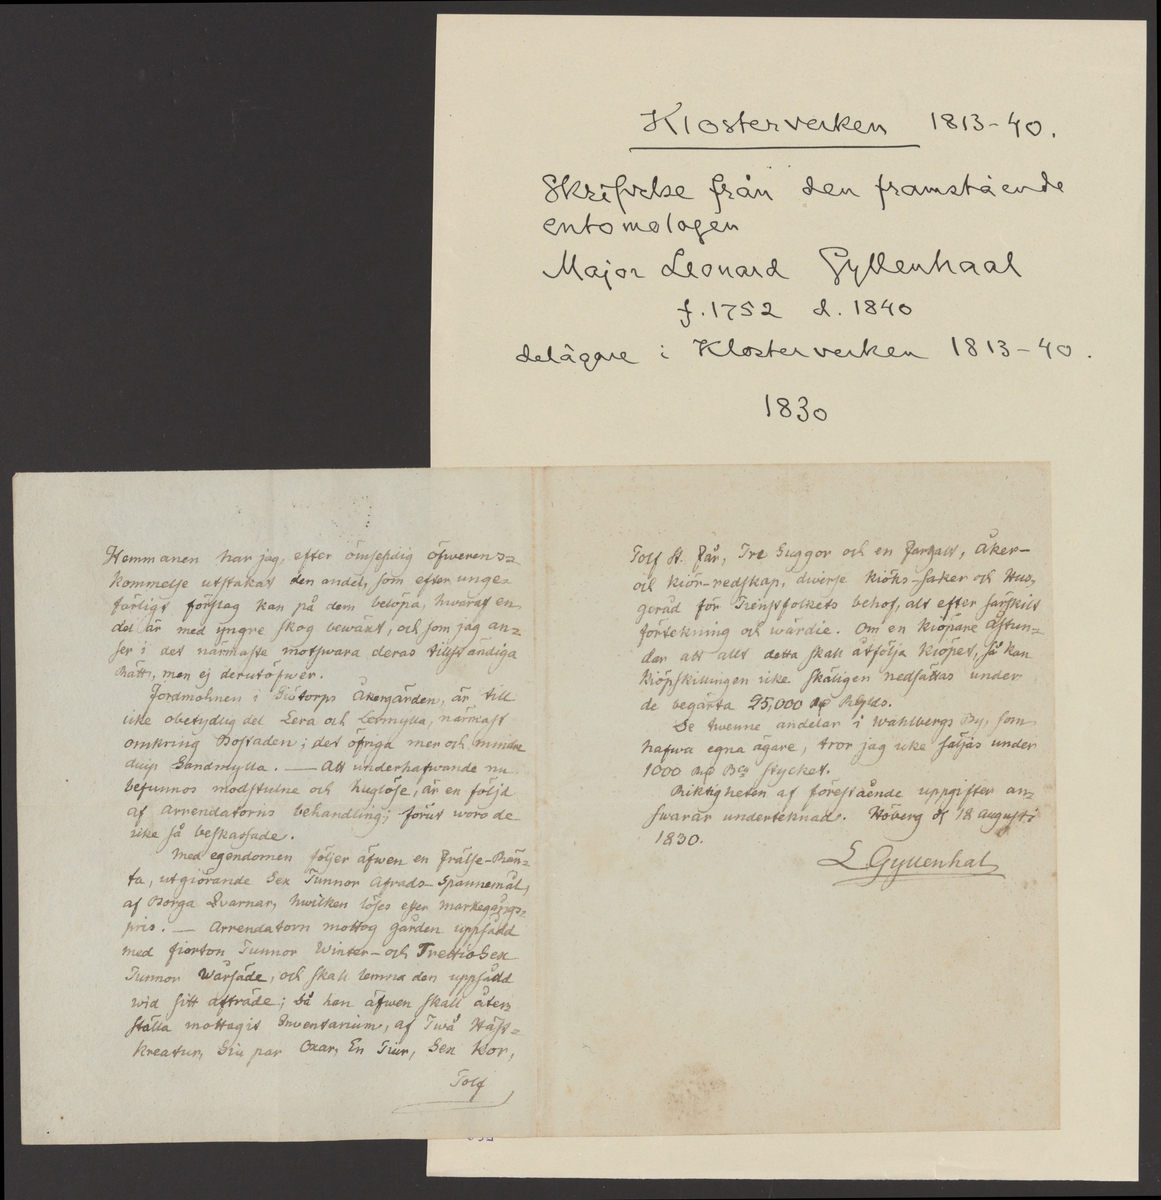 Klosterverken 1813-40.
Skrifvelse från den framstående
entomologen
Major Leonard Gyllenhaal
f. 1752 d. 1840
delägare i Klosterverken 1813-40.
1830
Hemmanen har jag, efter ömsesidig öfwerens=
kommelse utstakat den andel, som efter unge=
färligt förslag kan på dem belöpa, hwaraf en
del är med yngre skog bewäxt, och som jag an=
ser i det närmaste motswara deras tillständiga
Rätt, men ej derutöfwer.
Jordmohnen i Åkergärden, är till
icke obetydlig del Lera och Lermylla, närmast
omkring Bostaden; det öfriga mer och mindre
diup Sandmylla. — Att underhafwande nu
befunnos modstulne och huglöse, är en följd
af arrendatorns behandling; förut woro de
icke så beskaffade.
Med egendomen följer äfwen en Frälse-Rän=
ta, utgiörande Sex Tunnor Afrads-Spannemål,
af Borga Qvarnar, hwilken löses efter markegångs=
pris. — Arrendatorn mottog gården uppsådd
med fiorton Tunnor Winter- och Trettio Sex
Tunnor Wårsäde, och skall lemna den uppsådd
wid sitt afträde; Så han äfwen skall åter=
ställa mottagit Inventarium, af Twå Häst=
kreatur, Siu par Oxar, En Tiur, Sex Kor,
Tolf
Tolf St. Får, Tre Suggor och en Fargalt, Åker-
och kiör-redskap, diverse kiöks-saker och Hus=
geråd för Tienstfolkets behof, alt efter särskilt
förtekning och wärdie. Om en kiöpare åstun=
dar att allt detta skall åtfölja kiöpet, så kan
kiöpskillingen icke skäligen nedsättas under
de begärta 25,000 Rd Rglds.
De twenne andelar i Wahlbergs By, som
hafwa egna ägare, tror jag icke säljas under
1000 Rd Bco stycket.
Riktigheten af förestående uppgifter an=
swarar undertecknad. Höberg d. 18 Augusti
1830.
L. Gyllenhal